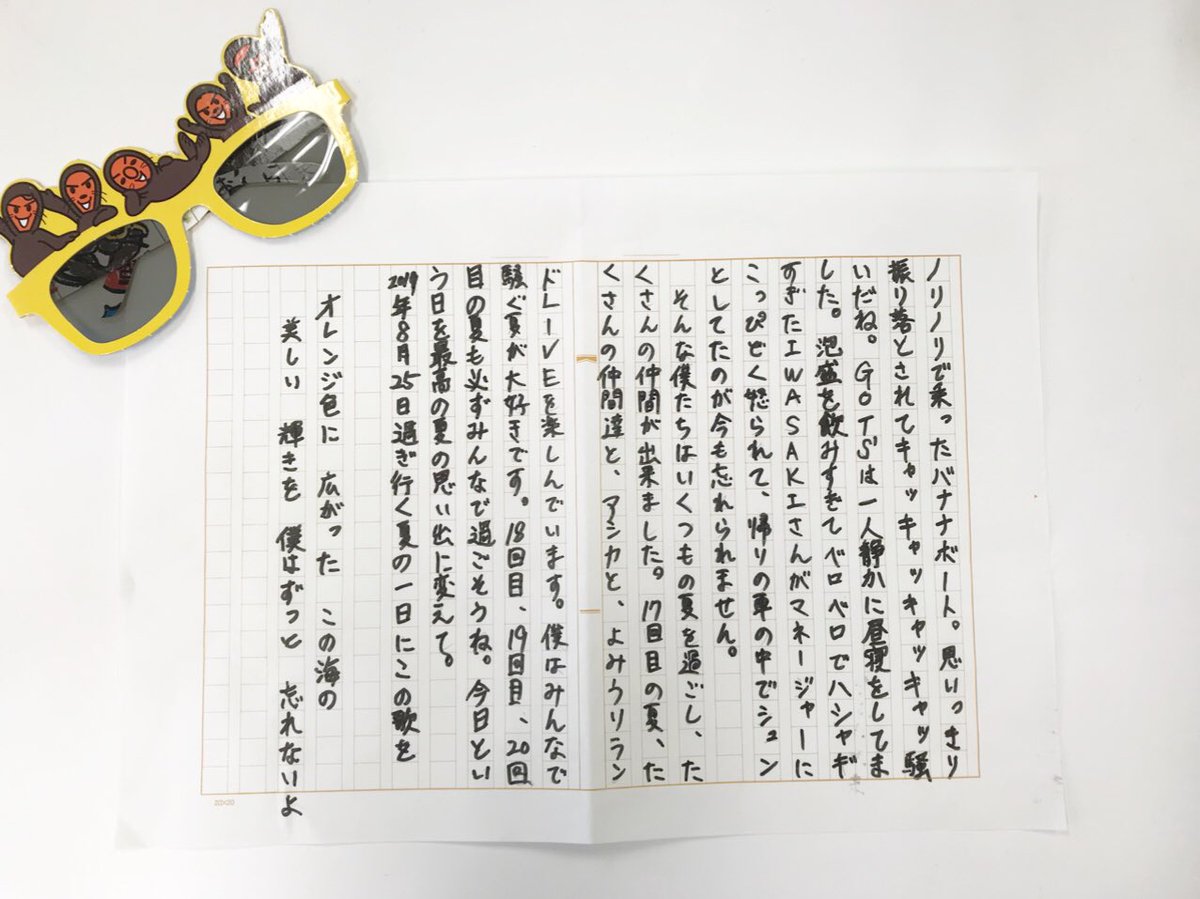 ノリノリで乗ったバナナボート。思いっきり
振り落とされてキャッキャッキャッキャッ騒
いだね。GOTSは一人静かに昼寝をしてま
した。泡盛を飲みすぎてベロベロでハシャギ
すぎたIWASAKIさんがマネージャーに
こっぴどく怒られて、帰りの車の中でシュン
としてたのが今も忘れられません。
そんな僕たちはいくつもの夏を過ごし、た
くさんの仲間が出来ました。17回目の夏、た
くさんの仲間達と、アシカと、よみうりラン
ドLIVEを楽しんでいます。僕はみんなで
騒ぐ夏が大好きです。18回目、19回目、20回
目の夏も必ずみんなで過ごそうね。今日とい
う日を最高の夏の思い出に変えて。
2019年8月25日過ぎ行く夏の一日にこの歌を
オレンジ色に 広がった この海の
美しい 輝きを 僕はずっと 忘れないよ
20×20